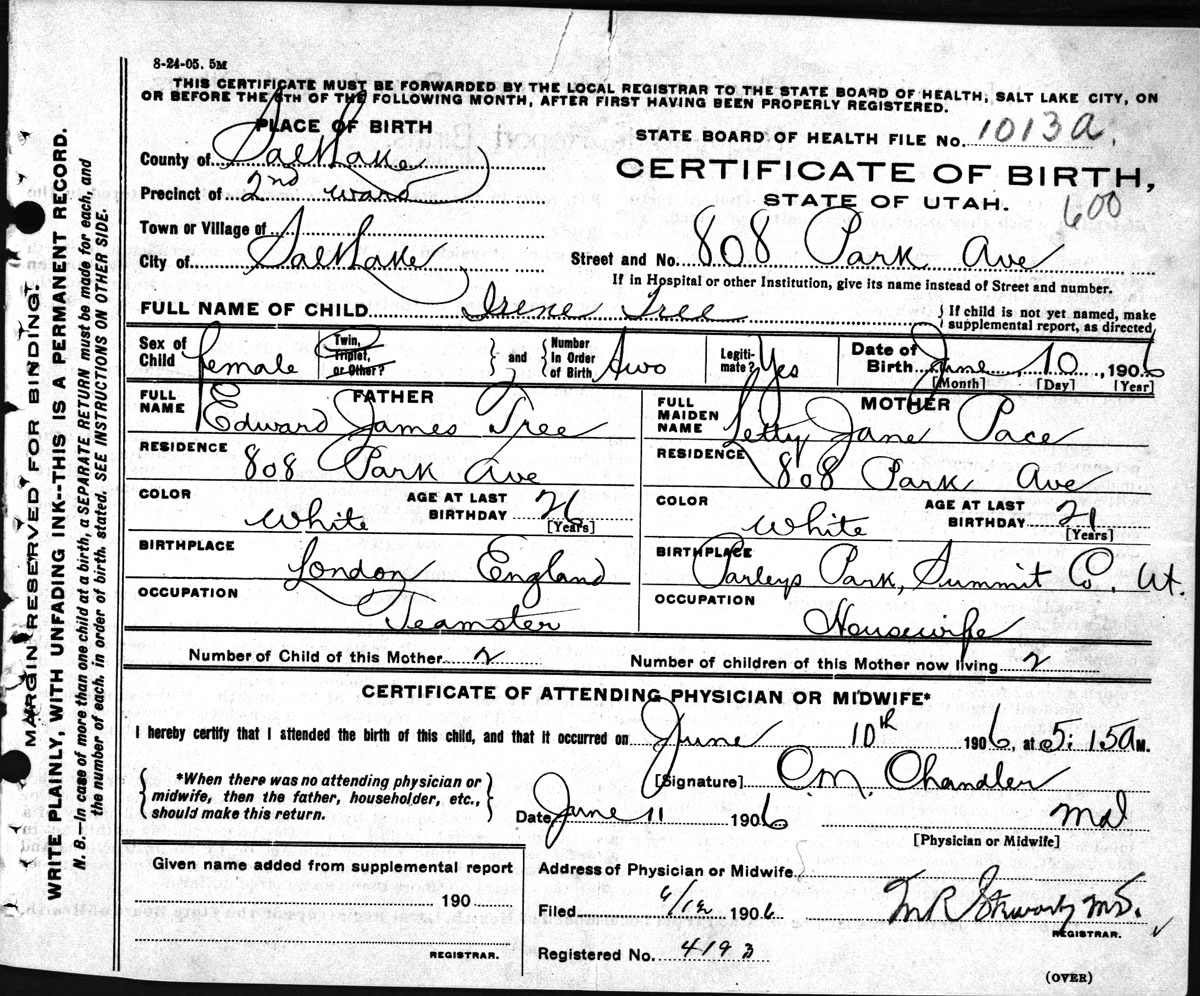 8-24-05. 5M
THIS CERTIFICATE MUST BE FORWARDED BY THE LOCAL REGISTRAR TO THE STATE BOARD OF HEALTH, SALT LAKE CITY, ON
OR BEFORE THE 5TH OF THE FOLLOWING MONTH, AFTER FIRST HAVING BEEN PROPERLY REGISTERED.
PLACE OF BIRTH
STATE BOARD OF HEALTH FILE No. 1013a.
County of Salt Lake
CERTIFICATE OF BIRTH,
Precinct of 2nd ward
STATE OF UTAH. 600
Town or Village of
City of Salt Lake
Street and No. 808 Park Ave
If in Hospital or other Institution, give its name instead of Street and number.
FULL NAME OF CHILD Irene Tree
{ If child is not yet named, make
supplemental report, as directed
Sex of Child female
Twin, Triplet, or Other? } and { Number In Order of Birth Two
Legiti-mate? Yes
Date of Birth June 10, 1906
[Month] [Day] [Year]
FULL NAME FATHER Edward James Tree
FULL MAIDEN NAME MOTHER Letty Jane Pace
RESIDENCE 808 Park Ave
RESIDENCE 808 Park Ave
COLOR White AGE AT LAST BIRTHDAY 26 [Years]
COLOR White AGE AT LAST BIRTHDAY 21 [Years]
BIRTHPLACE London England
BIRTHPLACE Parleys Park, Summit Co. Ut.
OCCUPATION Teamster
OCCUPATION Housewife
Number of Child of this Mother 2
Number of children of this Mother now living 2
CERTIFICATE OF ATTENDING PHYSICIAN OR MIDWIFE*
I hereby certify that I attended the birth of this child, and that it occurred on June 10th 1906, at 5:15 a M.
{ *When there was no attending physician or
midwife, then the father, householder, etc.,
should make this return. }
[Signature] C. M. Chandler
Date June 11 1906 Md
[Physician or Midwife]
Given name added from supplemental report
190
REGISTRAR.
Address of Physician or Midwife
Filed 6/12 1906
M.D.
REGISTRAR.
Registered No. 4193
(OVER)
MARGIN RESERVED FOR BINDING.
WRITE PLAINLY, WITH UNFADING INK--THIS IS A PERMANENT RECORD.
N. B.—In case of more than one child at a birth, a SEPARATE RETURN must be made for each, and
the number of each, in order of birth, stated. SEE INSTRUCTIONS ON OTHER SIDE.